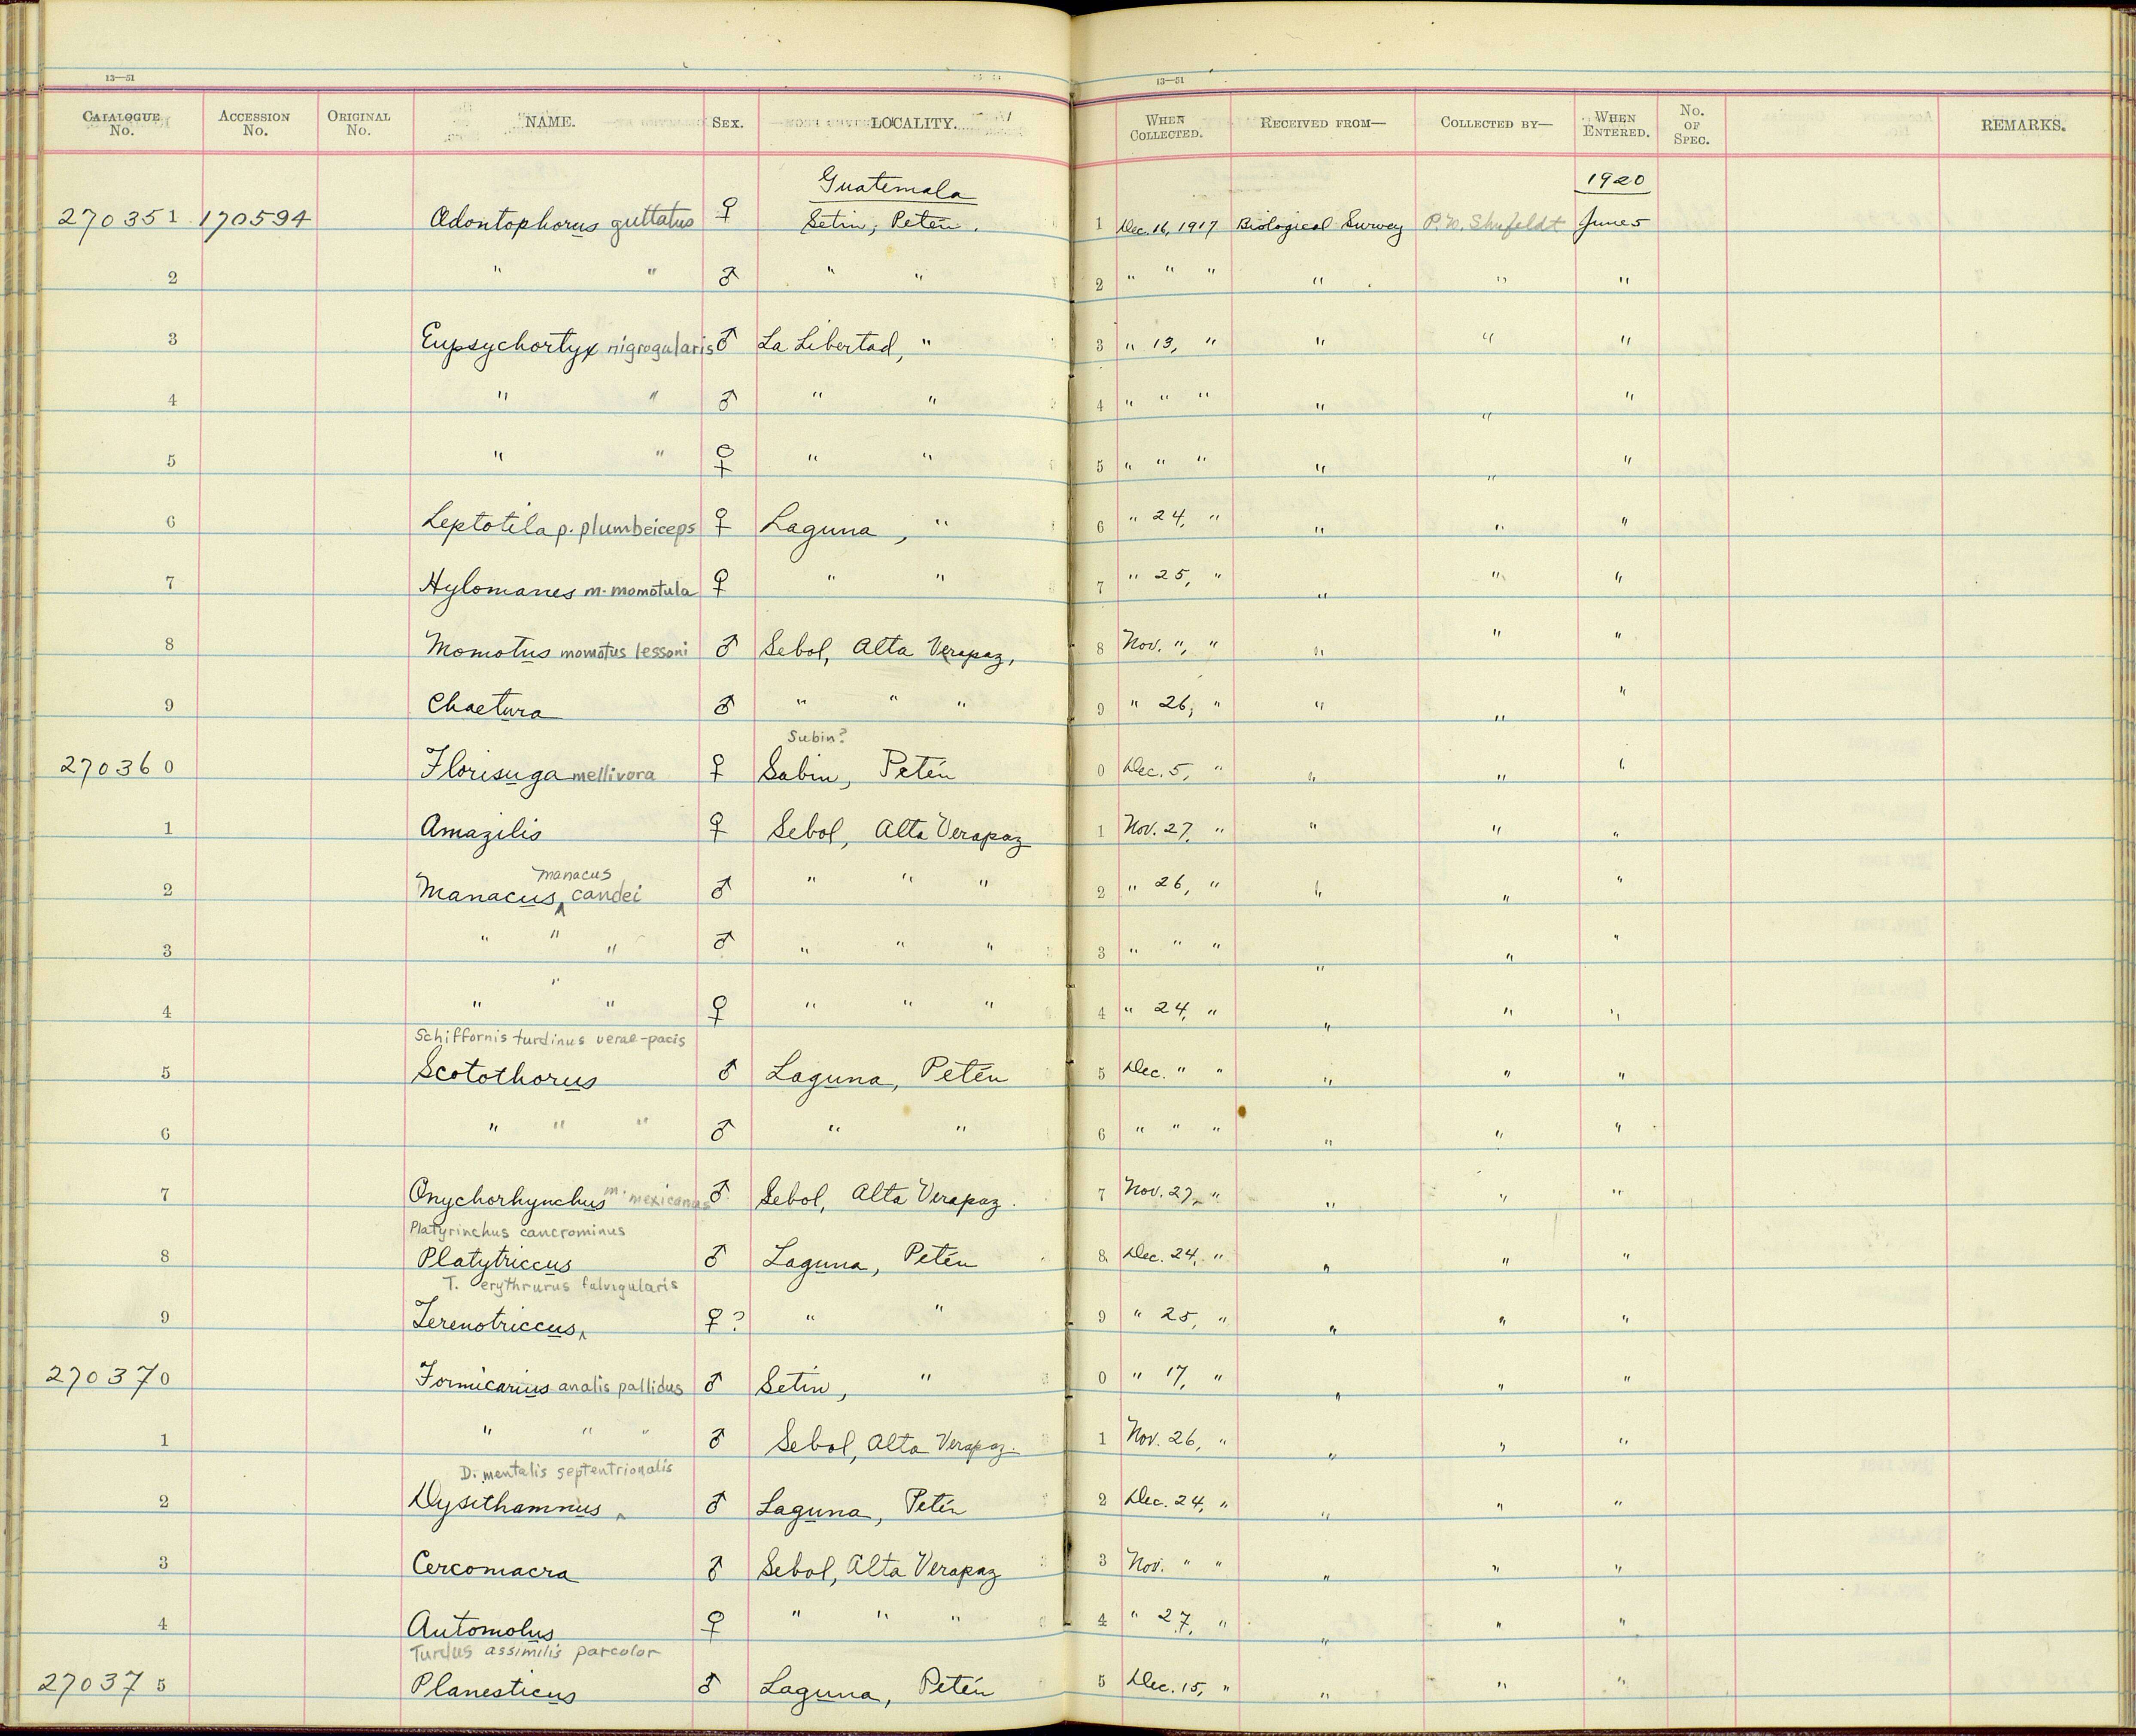 13—51 13—51
CATALOGUE No. ACCESSION No. ORIGINAL No. NAME. SEX. LOCALITY. WHEN COLLECTED. RECEIVED FROM— COLLECTED BY— WHEN ENTERED. No. OF SPEC. REMARKS.
Guatemala 1920
270351 170594 Odontophorus guttatus ♀ Setin, Petén. 1 Dec. 16, 1917 Biological Survey P. W. Shufeldt June 5
2 " " ♂ " " 2 " " " " " "
3 Eupsychortyx nigrogularis ♂ La Libertad, " 3 " 13, " " " "
4 " " ♂ " " 4 " " " " " "
5 " " ♀ " " 5 " " " " " "
6 Leptotila p. plumbeiceps ♀ Laguna, " 6 " 24, " " " "
7 Hylomanes m. momotula ♀ " " 7 " 25, " " " "
8 Momotus momotus lessoni ♂ Sebol, Alta Verapaz, 8 Nov. ", " " " "
9 Chaetura ♂ " " " 9 " 26, " " " "
Subin?
270360 Florisuga mellivora ♀ Sabin, Petén 0 Dec. 5, " " " "
1 Amazilis ♀ Sebol, Alta Verapaz 1 Nov. 27, " " " "
manacus
2 Manacus ^ candei ♂ " " " 2 " 26, " " " "
3 " " " ♂ " " " 3 " " " " " "
4 " " " ♀ " " " 4 " 24, " " " "
Schiffornis turdinus verae-pacis
5 Scotothorus ♂ Laguna, Petén 5 Dec. " " " " "
6 " " " ♂ " " 6 " " " " " "
7 Onychorhynchus m. mexicanus ♂ Sebol, Alta Verapaz. 7 Nov. 27, " " " "
Platyrinchus cancrominus
8 Platytriccus ♂ Laguna, Petén 8 Dec. 24, " " " "
T. erythrurus fulvigularis
9 Terenotriccus ^ ♀? " " 9 " 25, " " " "
270370 Formicarius analis pallidus ♂ Setin, " 0 " 17, " " " "
1 " " " ♂ Sebol, Alta Verapaz. 1 Nov. 26, " " " "
D. mentalis septentrionalis
2 Dysithamnus ^ ♂ Laguna, Petén 2 Dec. 24, " " " "
3 Cercomacra ♂ Sebol, Alta Verapaz 3 Nov. " " " " "
4 Automolus ♀ " " " 4 " 27, " " " "
Turdus assimilis parcolor
270375 Planesticus ♂ Laguna, Petén 5 Dec. 15, " " " "